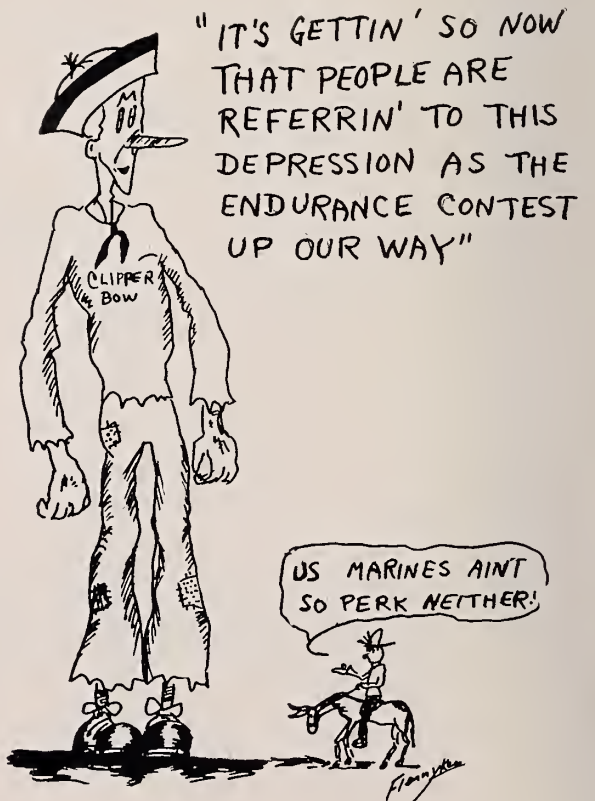 "IT'S GETTIN' SO NOW
THAT PEOPLE ARE
REFERRIN' TO THIS
DEPRESSION AS THE
ENDURANCE CONTEST
UP OUR WAY"
CLIPPER
BOW
US MARINES AIN'T
SO PERK NEITHER!